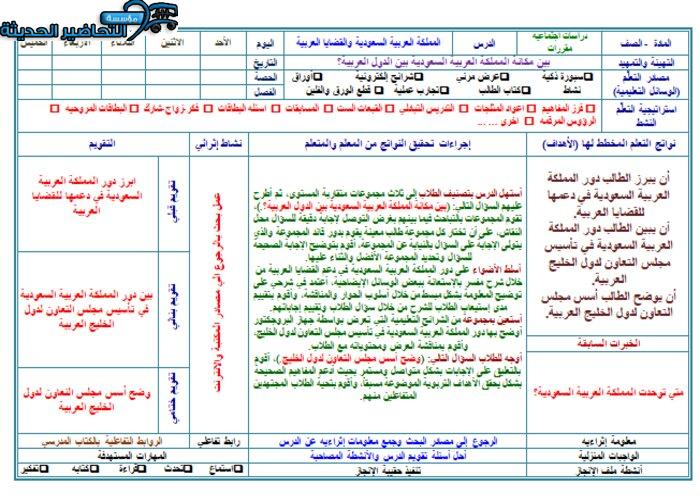 مؤسسة
التحاضير الحديثة
المادة - الصف
دراسات اجتماعية
مقررات
الدرس
المملكة العربية السعودية والقضايا العربية
اليوم
الأحد
الاثنين
الثلاثاء
الأربعاء
الخميس
التهيئة والتمهيد
بين مكانة المملكة العربية السعودية بين الدول العربية؟
التاريخ
مصادر التعلم
(الوسائل التعليمية)
سبورة ذكية
عرض مرئي
شرائح إلكترونية
أوراق
نشاط
كتاب الطالب
تجارب عملية
قطع الورق والفلين
الحصة
الفصل
استراتيجية التعلم
النشط
فرز المفاهيم
اعواد المثلجات
التدريس التبادلي
القبعات الست
المسابقات
اسئله البطاقات
فكر-زواج-شارك
البطاقات المروحيه
الرؤوس المرقمه
اخرى ... ...
نواتج التعلم المخطط لها (الأهداف)
إجراءات تحقيق النواتج من المعلم والمتعلم
نشاط إثرائي
التقويم
أن يبرز الطالب دور المملكة
العربية السعودية في دعمها
للقضايا العربية.
أن يبين الطالب دور المملكة
العربية السعودية في تأسيس
مجلس التعاون لدول الخليج
العربية.
أن يوضح الطالب أسس مجلس
التعاون لدول الخليج العربية.
الخبرات السابقة
متي توحدت المملكة العربية السعودية؟
أستهل الدرس بتصنيف الطلاب إلى ثلاث مجموعات متقاربة المستوى، ثم أطرح
عليهم السؤال التالي: (بين مكانة المملكة العربية السعودية بين الدول العربية؟)،
تقوم المجموعات بالتباحث فيما بينهم بغرض التوصل لإجابة دقيقة للسؤال محل
النقاش، على أن تختار كل مجموعة طالب معينة يقوم بدور قائد المجموعة والذي
يتولى الإجابة على السؤال بالنيابة عن المجموعة، أقوم بتوضيح الإجابة الصحيحة
للسؤال وتحديد المجموعة الأفضل والثناء عليها.
أسلط الأضواء على دور المملكة العربية السعودية في دعم القضايا العربية من
خلال شرح مفسر بالاستعانة ببعض الوسائل الإيضاحية، أعتمد في شرحي على
توضيح المعلومة بشكل مبسط من خلال أسلوب الحوار والمناقشة، وأقوم بتقييم
مدى إستيعاب الطلاب للشرح من خلال سؤال الطلاب وتقييم إجاباتهم.
أستعين بمجموعة من الشرائح التعليمية التي تعرض بواسطة جهاز البروجكتور
أوضح بها دور المملكة العربية السعودية في تأسيس مجلس التعاون لدول الخليج،
وأقوم بمناقشة العرض ومحتوياته مع الطلاب.
أوجه للطلاب السؤال التالي: (وضح أسس مجلس التعاون لدول الخليج.)، أقوم
بالتعليق على الإجابات بشكل متواصل ومستمر بحيث أدعم المفاهيم الصحيحة
بشكل يحقق الأهداف التربوية الموضوعة مسبقاً، وأقوم بتحية الطلاب المجتهدين
المتفاعلين منهم.
عمل بحث بالرجوع الي مصادر المكتبية والانترنت
تقويم قبلي
ابرز دور المملكة العربية
السعودية في دعمها للقضايا
العربية
تقويم بنائي
بين دور المملكة العربية السعودية
في تأسيس مجلس التعاون لدول
الخليج العربية
تقويم ختامي
وضح أسس مجلس التعاون لدول
الخليج العربية
معلومة إثرائيه
الرجوع إلى مصادر البحث وجمع معلومات إثراءيه عن الدرس
رابط تفاعلي
الروابط التفاعلية بالكتاب المدرسي
الواجبات المنزلية
أحل أسئلة تقويم الدرس والأنشطة المصاحبة
المهارات المستهدفة
أنشطة ملف الإنجاز
تنفيذ حقيبة الإنجاز
استماع
تحدث
قراءة
كتابه
تفكير